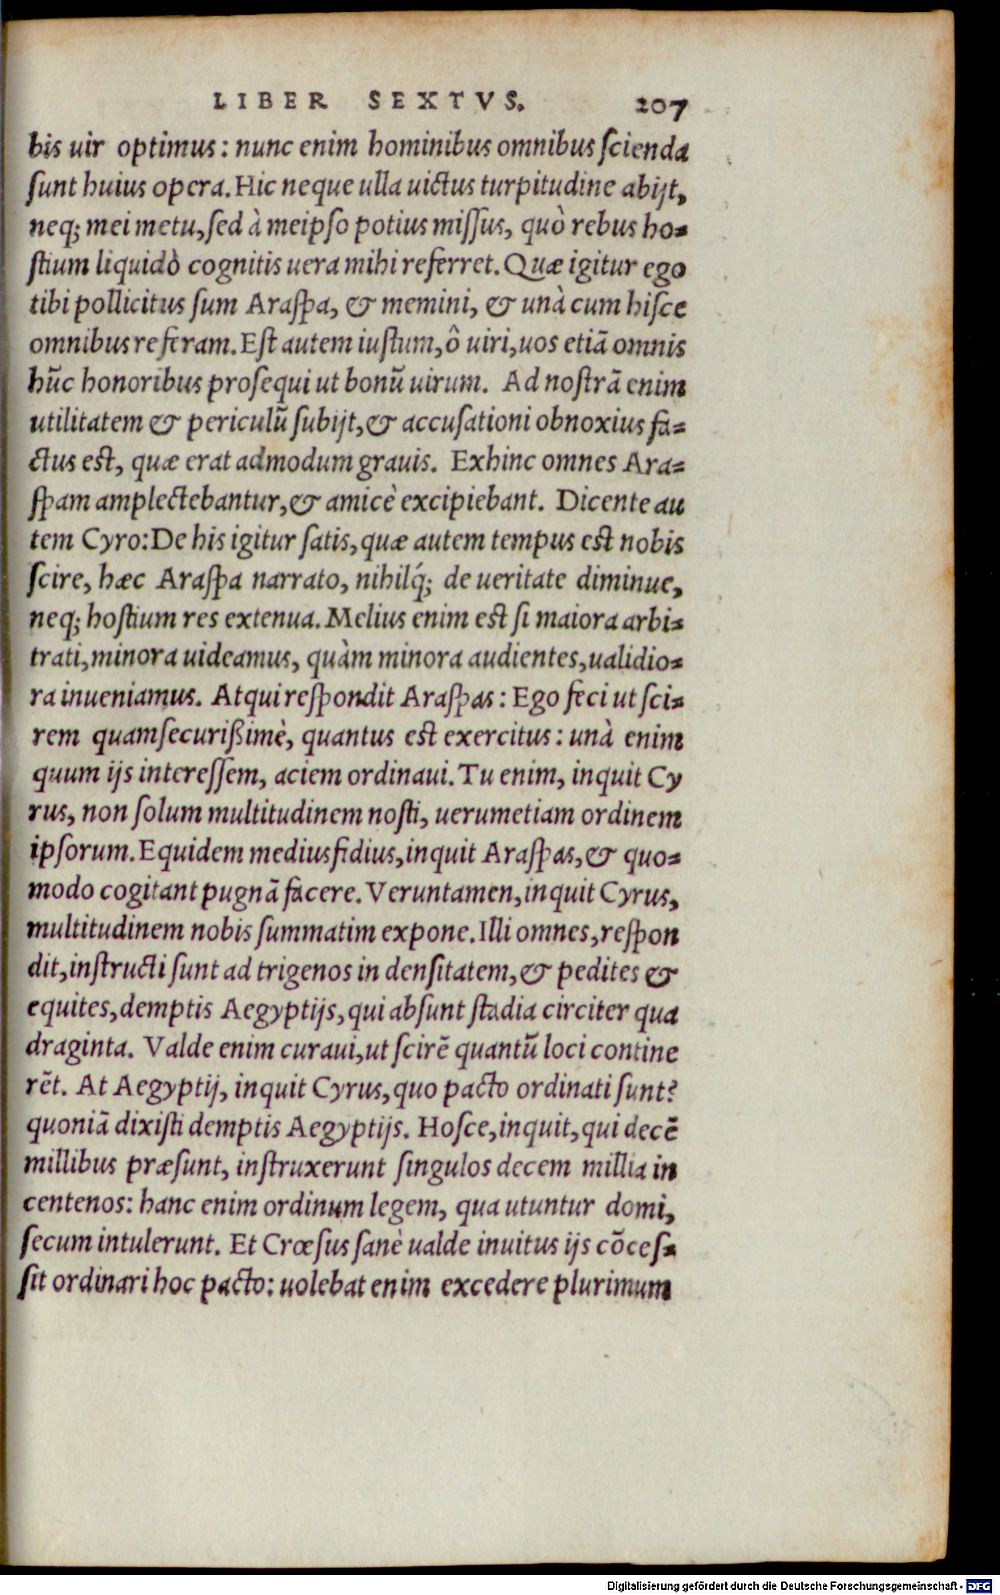 LIBER SEXTVS. 207
bis uir optimus: nunc enim hominibus omnibus ſcienda
ſunt huius opera. Hic neque ulla uictus turpitudine abijt,
neq; mei metu, ſed à meipſo potius miſſus, quò rebus ho-
ſtium liquidò cognitis uera mihi referret. Quæ igitur ego
tibi pollicitus ſum Araſpa, & memini, & unà cum hiſce
omnibus referam. Eſt autem iuſtum, ô uiri, uos etiã omnis
hũc honoribus proſequi ut bonũ uirum. Ad noſtrã enim
utilitatem & periculũ ſubijt, & accuſationi obnoxius fa-
ctus eſt, quæ erat admodum grauis. Exhinc omnes Ara-
ſpam amplectebantur, & amicè excipiebant. Dicente au
tem Cyro: De his igitur ſatis, quæ autem tempus eſt nobis
ſcire, hæc Araſpa narrato, nihilq́; de ueritate diminue,
neq; hoſtium res extenua. Melius enim eſt ſi maiora arbi-
trati, minora uideamus, quàm minora audientes, ualidio-
ra inueniamus. Atqui reſpondit Araſpas: Ego feci ut ſci-
rem quamſecurißimè, quantus eſt exercitus: unà enim
quum ijs intereſſem, aciem ordinaui. Tu enim, inquit Cy
rus, non ſolum multitudinem noſti, uerumetiam ordinem
ipſorum. Equidem mediusfidius, inquit Araſpas, & quo-
modo cogitant pugnã facere. Veruntamen, inquit Cyrus,
multitudinem nobis ſummatim expone. Illi omnes, reſpon
dit, inſtructi ſunt ad trigenos in denſitatem, & pedites &
equites, demptis Aegyptijs, qui abſunt ſtadia circiter qua
draginta. Valde enim curaui, ut ſcirẽ quantũ loci contine
rẽt. At Aegyptij, inquit Cyrus, quo pacto ordinati ſunt?
quoniã dixiſti demptis Aegyptijs. Hoſce, inquit, qui decẽ
millibus præſunt, inſtruxerunt ſingulos decem millia in
centenos: hanc enim ordinum legem, qua utuntur domi,
ſecum intulerunt. Et Crœſus ſanè ualde inuitus ijs cõceſ-
ſit ordinari hoc pacto: uolebat enim excedere plurimum
Digitalisierung gefördert durch die Deutsche Forschungsgemeinschaft - DFG